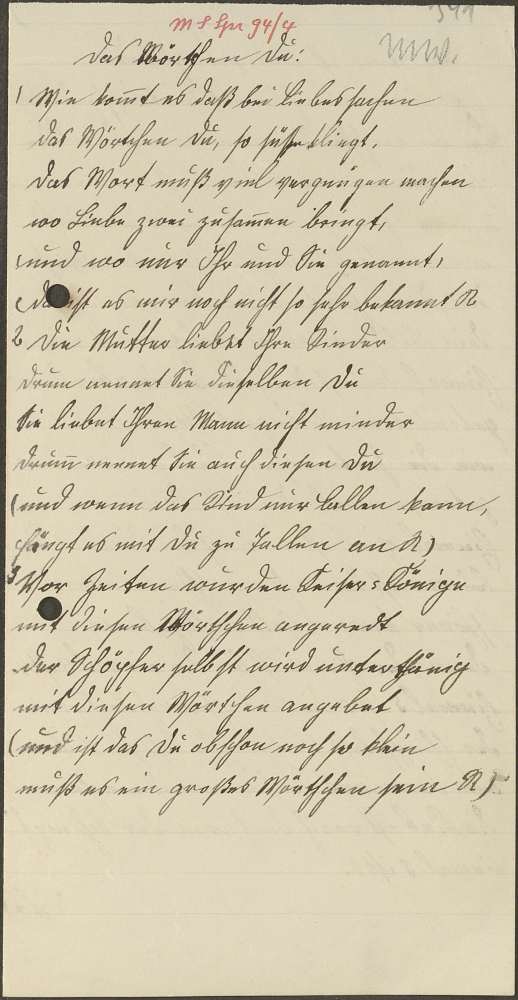 341
M S Gr 94/4
MW.
Das Wörtchen Du:
1 Wie kommt es daß bei Liebessachen
das Wörtchen Du, so süße kliegt.
Das Wort muß viel vergnügen machen
wo Liebe zwei zusammen bringt,
und wo nur Ihr und Sie genannt,
da ist es mir noch nicht so sehr bekannt R
2 Die Mutter liebet Ihre Kinder
drum nennet Sie dieselben Du
Sie liebet Ihren Mann nicht minder
drum nennet Sie auch diesen Du
(und wenn das Kind nur lallen kann,
fängt es mit Du zu lallen an R)
3 Vor Zeiten wurden Keiser = Könige
mit diesen Wörtchen angeredt
der Schöpfer selbst wird unterthänig
mit diesen Wörtchen angebet
(und ist das Du obschon noch so klein
muß es ein großes Wörtchen sein R)